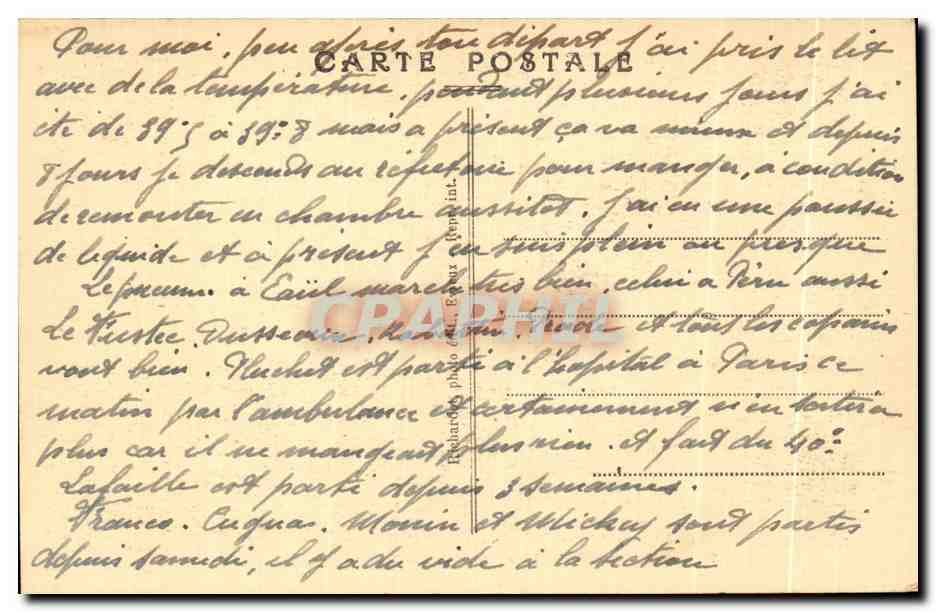 Pour moi, peu après ton départ j'ai pris le lit
CARTE POSTALE
avec de la température, pendant plusieurs jours j'ai
été de 39°5 à 39°8 mais a présent ça va mieux et depuis
8 jours je descends au réfectoire pour manger, à condition
de remonter en chambre aussitôt. J'ai eu une poussée
de liquide et à présent j'en suis plein ou presque
Le pneumo à Emil marche très bien, celui à Père aussi
Le et tous les copains
vont bien. Pluchet est parti à l'hopital à Paris ce
matin par l'ambulance et certainement n'en sortira
plus car il ne mangeait plus rien. et fait du 40°
Lafaille est parti depuis 3 semaines.
Franco. Cugnac. Monin et Mickey sont partis
depuis samedi, il y a du vide à la section
Richard, photo édit., Evreux Repr. int.
CPAPHIL